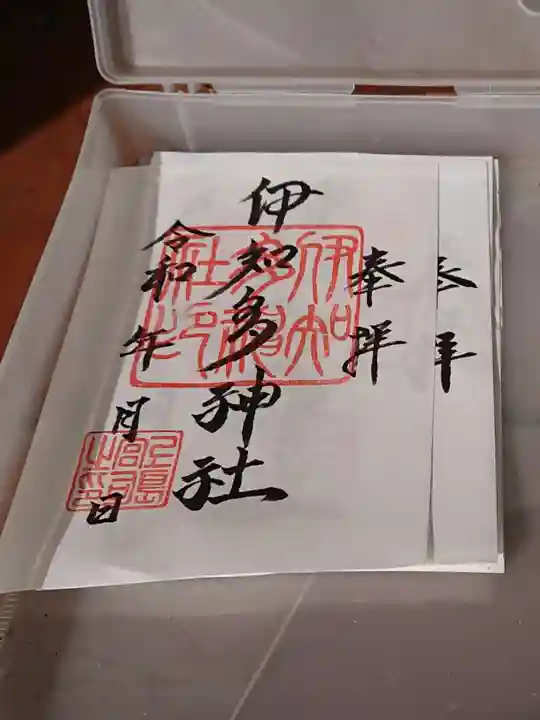 奉拝
伊知多神社
令和 年 月 日
伊知多神社印